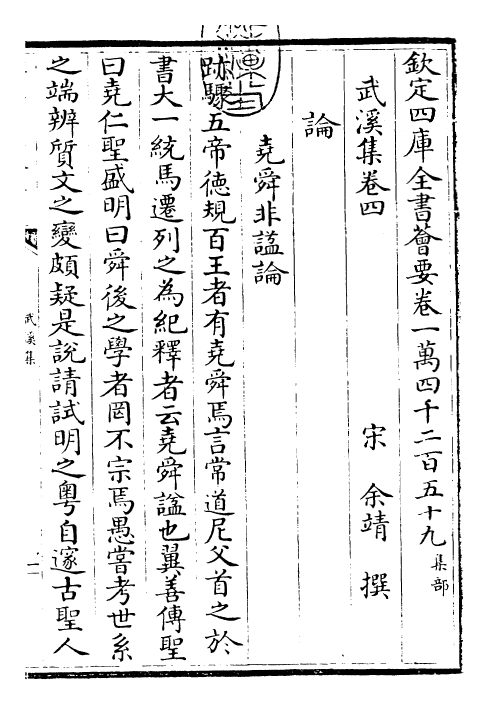 欽定四庫全書薈要卷一萬四千二百五十九 集部
武溪集卷四
宋 余靖 撰
論
堯舜非諡論
跡驟五帝徳規百王者有堯舜焉言常道尼父首之於
書大一統馬遷列之為紀釋者云堯舜諡也翼善傳聖
曰堯仁聖盛明曰舜後之學者罔不宗焉愚嘗考世系
之端辨質文之變頗疑是說請試明之粤自邃古聖人
武溪集
一